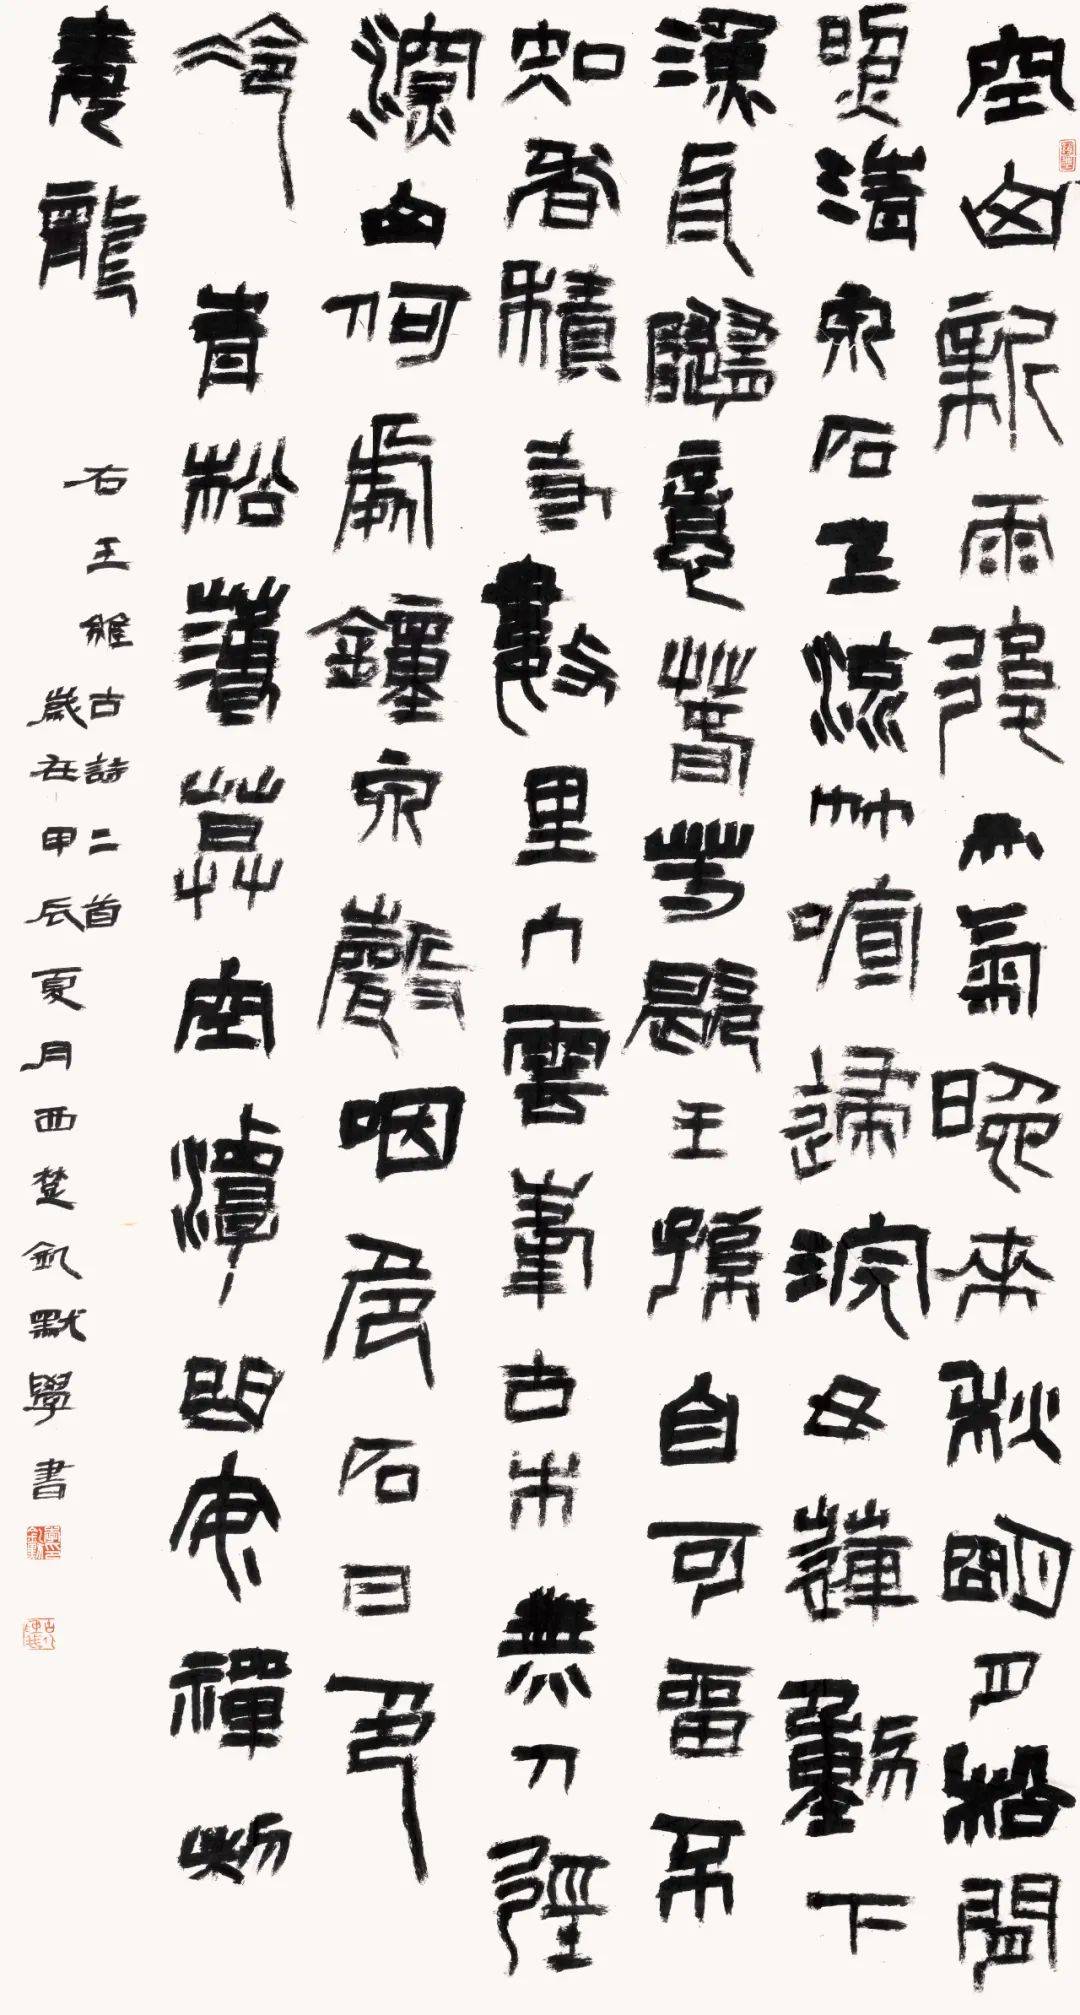 空山新雨後天氣晚來秋明月松間
照清泉石上流竹喧歸浣女蓮動下
漁舟隨意春芳歇王孫自可留不
知香積寺數里入雲峯古木無人徑
深山何處鐘泉聲咽危石日色
冷青松薄暮空潭曲安禪制
毒龍
右王維古詩二首
歲在甲辰夏月西楚默學書